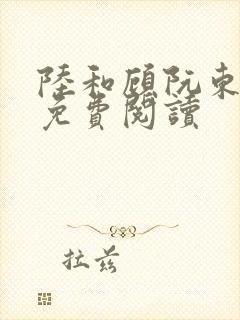 陸和顧阮東
免費閱讀
拉兹